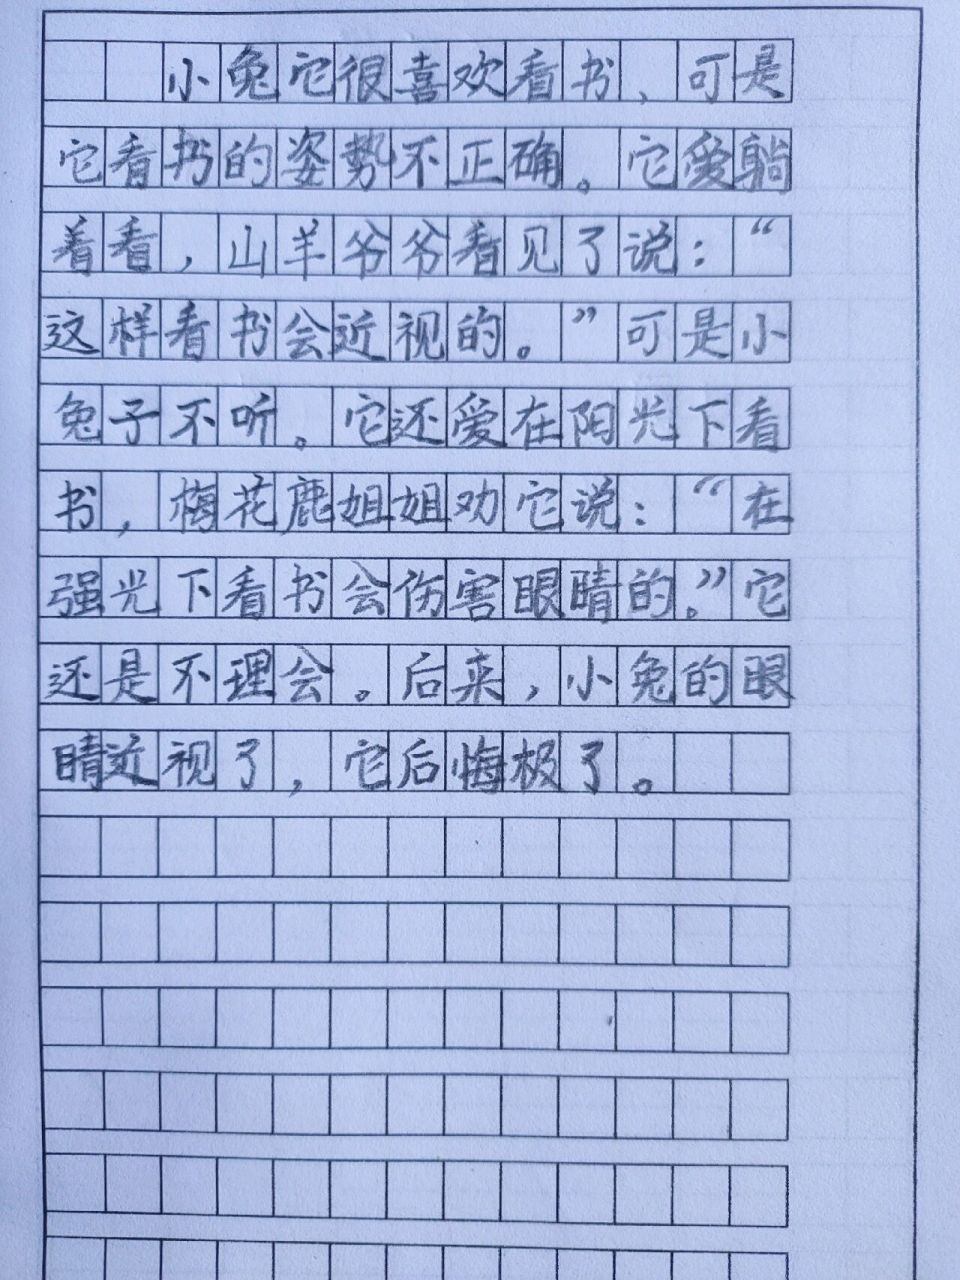 小兔它很喜欢看书、可是
它看书的姿势不正确。它爱躺
着看，山羊爷爷看见了说：“
这样看书会近视的。”可是小
兔子不听。它还爱在阳光下看
书，梅花鹿姐姐劝它说：“在
强光下看书会伤害眼睛的。”它
还是不理会。后来，小兔的眼
睛近视了，它后悔极了。